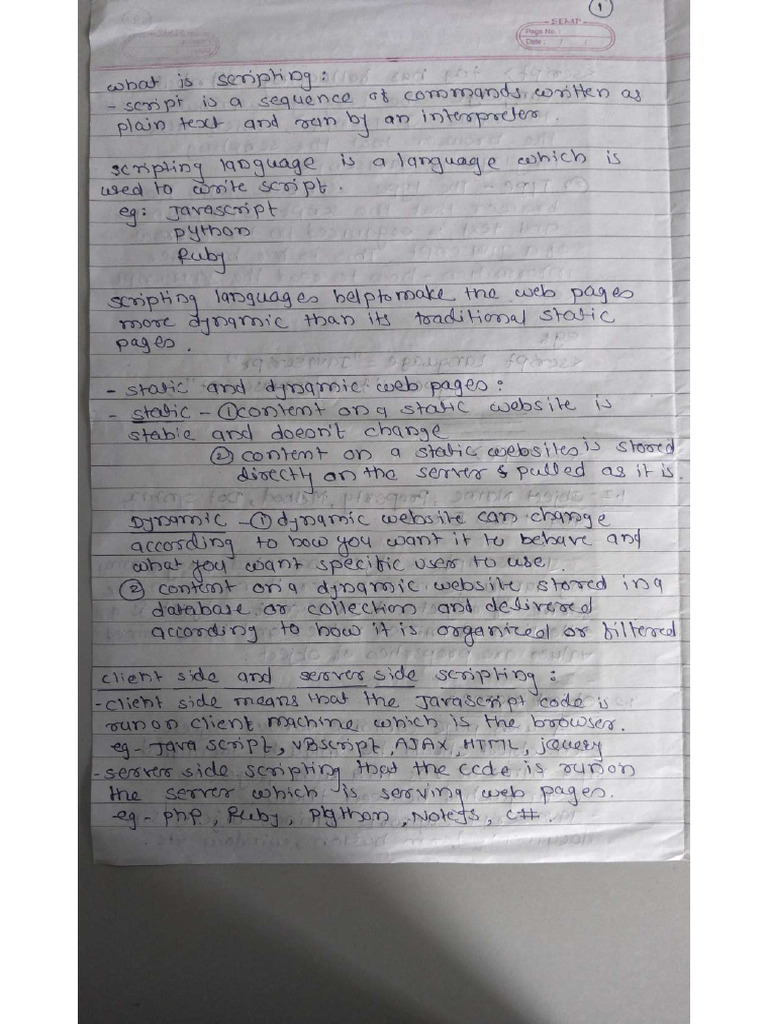 1
SEMP
Page No.:
Date: / /
what is scripting:
- script is a sequence of commands written as
plain text and run by an interpreter.
scripting language is a language which is
used to write script.
eg: Javascript
Python
Ruby
scripting languages help to make the web pages
more dynamic than its traditional static
pages.
- static and dynamic web pages:
- static - ① content on a static website is
stable and doesn't change
② content on a static websites is stored
directly on the server & pulled as it is.
Dynamic - ① dynamic website can change
according to how you want it to behave and
what you want specific user to use.
② content on a dynamic website stored in a
database or collection and delivered
according to how it is organized or filtered
client side and server side scripting:
- client side means that the Javascript code is
run on client machine which is the browser.
eg - Java script, VBscript, AJAX, HTML, jquery
- server side scripting that the code is run on
the server which is serving web pages.
eg - PHP, Ruby, Python, NoteJs, C#.